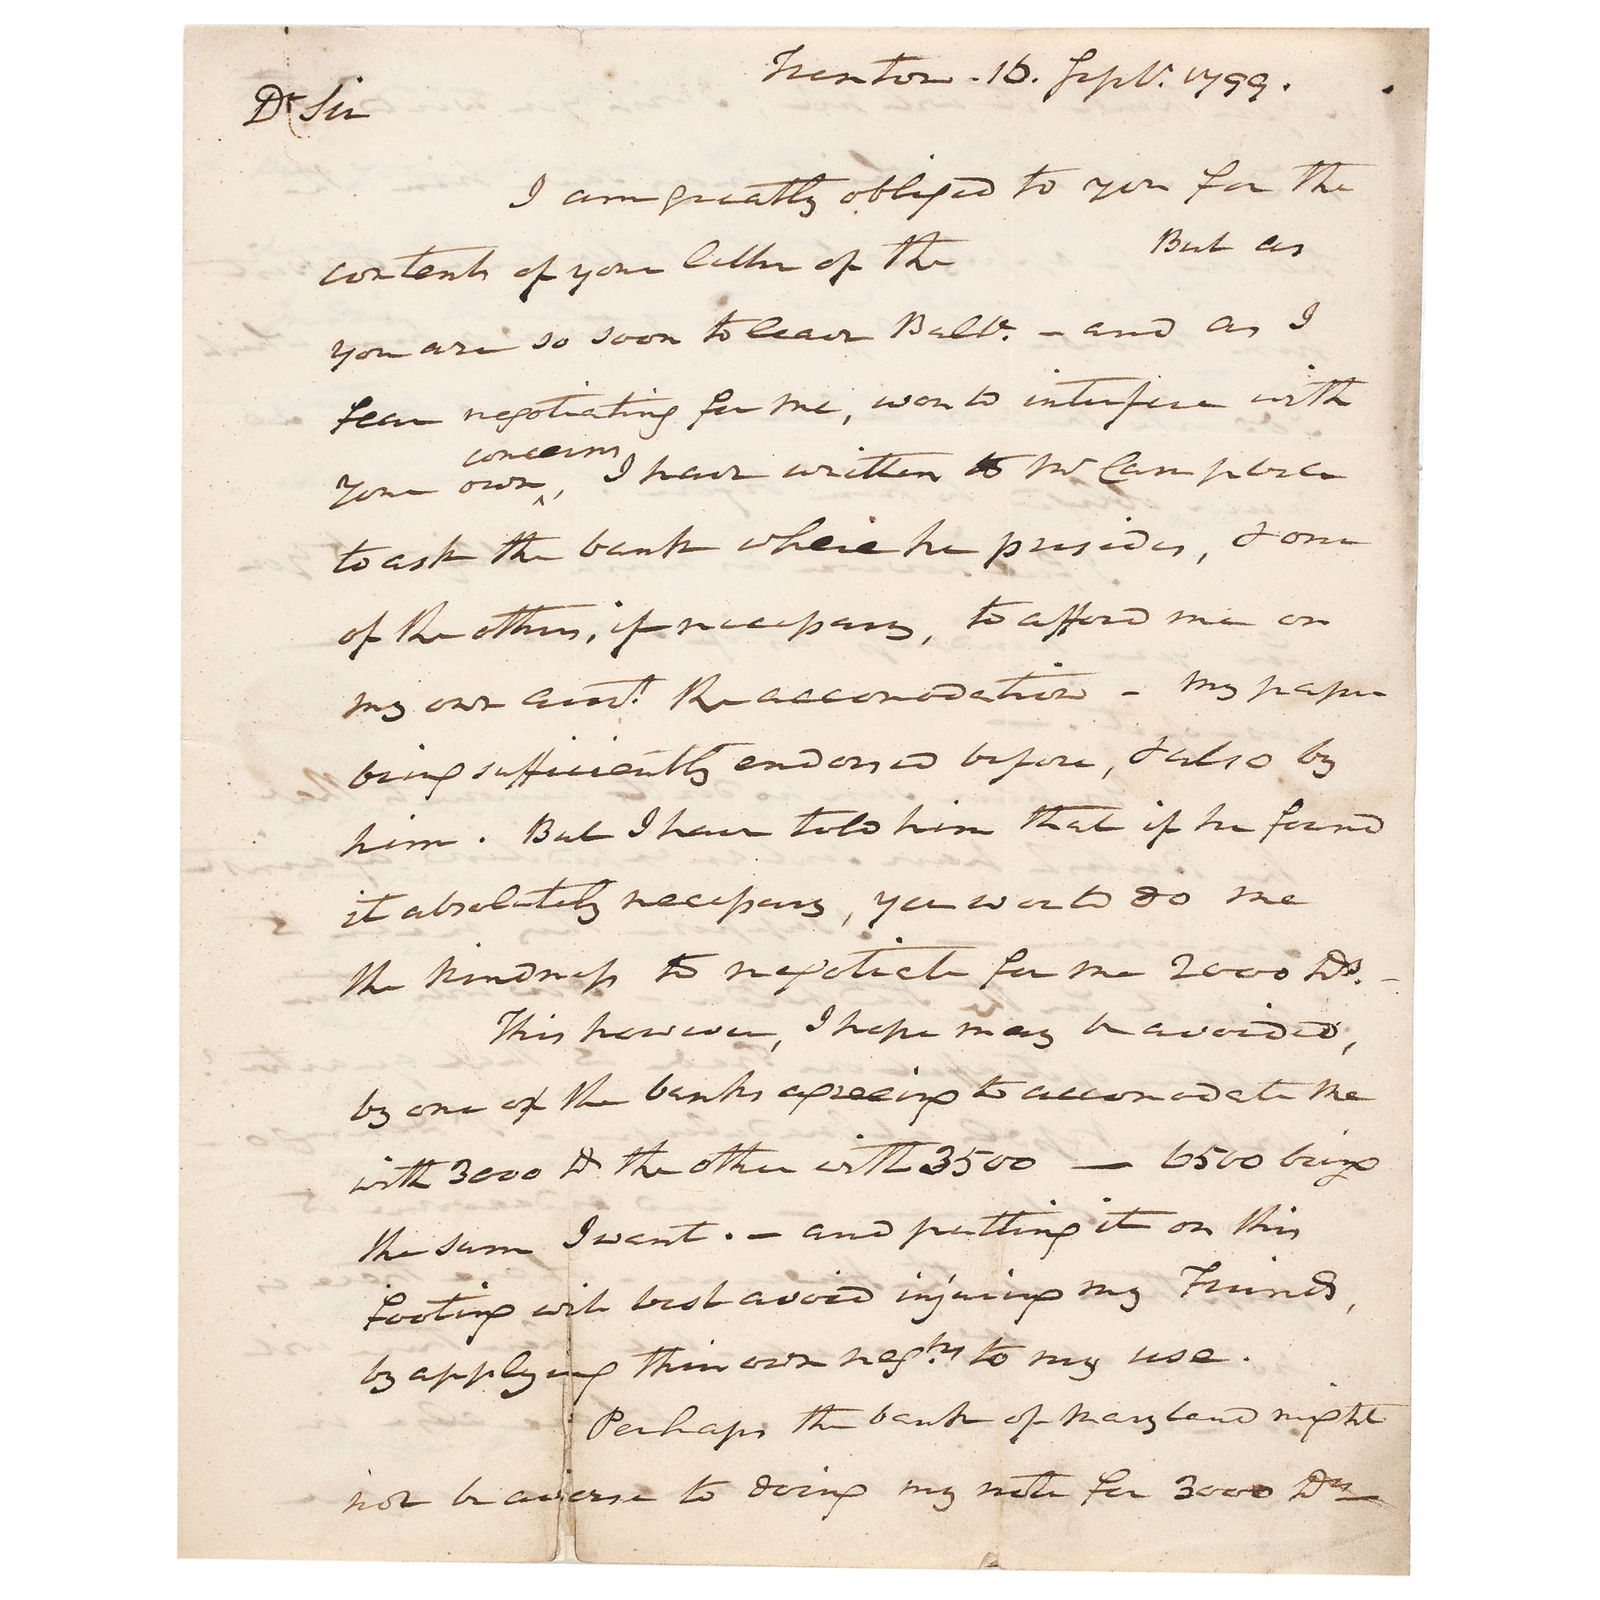 Trenton. 16. Sepbr. 1799.
Dr Sir
I am greatly obliged to you for the
contents of your letter of the But as
you are so soon to leave Balte. – and as I
fear negotiating for me, would interfere with
concerns
your own ^, I have written to Mr
to ask the bank where he presides, & one
of the others, if necessary, to afford me on
my own acct. the accomodation – my paper
being sufficiently endorsed before, & also by
him. But I have told him that if he found
it absolutely necessary, you would do me
the kindness to negotiate for me 2000 Ds. –
This however, I hope may be avoided,
by one of the banks agreeing to accomodate me
with 3000 & the other with 3500 — 6500 being
the sum I want. – and putting it on this
footing will best avoid injuring my Friends,
by applying their own to my use.
Perhaps the bank of Maryland might
not be averse to doing my note for 3000 Drs